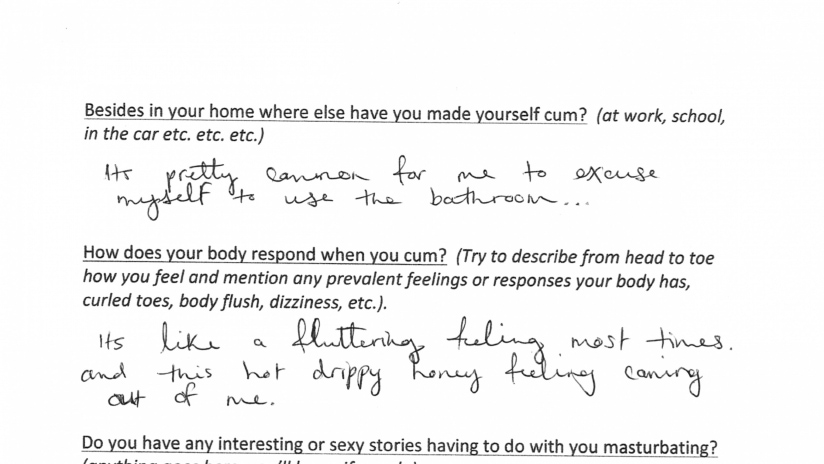 Besides in your home where else have you made yourself cum? (at work, school,
in the car etc. etc. etc.)
Its pretty common for me to excuse
myself to use the bathroom...
How does your body respond when you cum? (Try to describe from head to toe
how you feel and mention any prevalent feelings or responses your body has,
curled toes, body flush, dizziness, etc.).
Its like a fluttering feeling most times.
and this hot drippy honey feeling coming
out of me.
Do you have any interesting or sexy stories having to do with you masturbating?